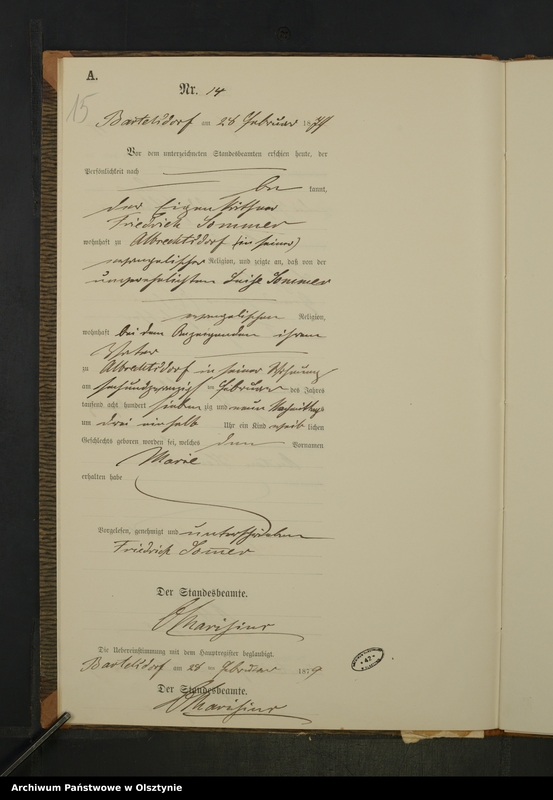 A.
15
Nr. 14
Bartelsdorf am 28 Februar 1879
Vor dem unterzeichneten Standesbeamten erschien heute, der
Persönlichkeit nach
be kannt,
der Eigenkäthner
Friedrich Sommer
wohnhaft zu Albrechtsdorf
evangelischer Religion, und zeigte an, daß von der
unverehelichten Luise Sommer
evangelischen Religion,
wohnhaft bei dem Anzeigenden ihrem
Vater
zu Albrechtsdorf in seiner Wohnung
am sechsundzwanzigsten Februar des Jahres
tausend acht hundert siebenzig und neun Nachmittags
um drei einhalb Uhr ein Kind weiblichen
Geschlechts geboren worden sei, welches den Vornamen
Marie
erhalten habe
Vorgelesen, genehmigt und unterschrieben
Friedrich Somer
Der Standesbeamte.
Die Uebereinstimmung mit dem Hauptregister beglaubigt.
Bartelsdorf am 28 ten Februar 1879
Der Standesbeamte.
* 47 *
Archiwum Państwowe w Olsztynie